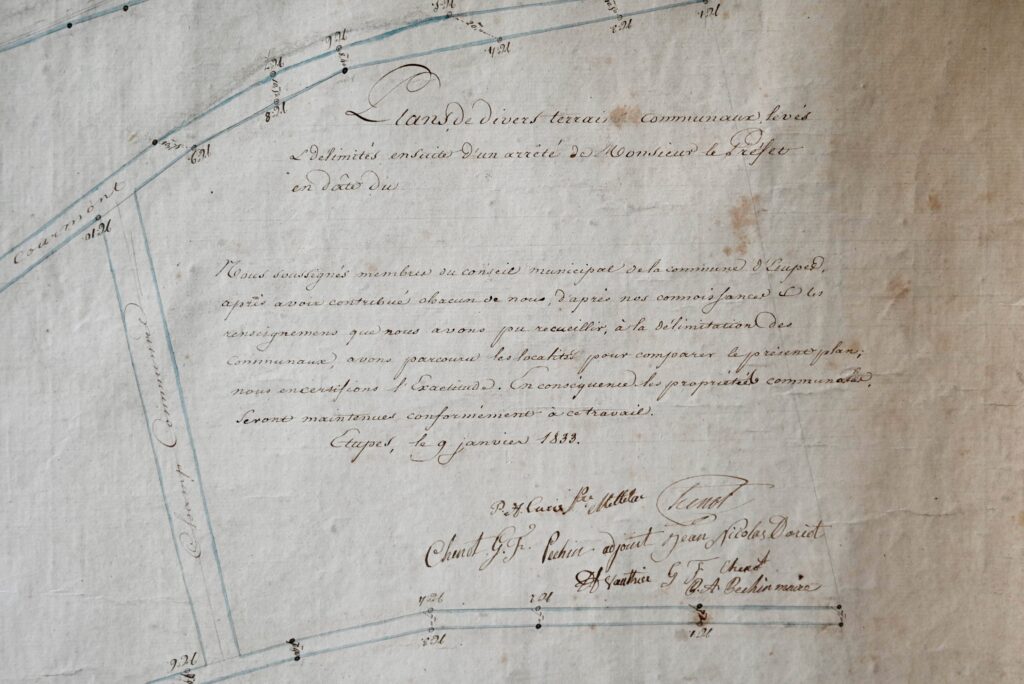 Plans, de divers terrains communaux, levés
& délimités ensuite d'un arrêté de Monsieur le Préfet
en dâte du
Nous soussignés membres du conseil municipal de la commune d'Etupes,
après avoir contribué chacun de nous, d'après nos connoissances & les
renseignemens que nous avons pu recueillir, à la délimitation des
Communaux, avons parcouru les localités pour comparer le présent plan;
nous en certifions l'Exactitude. En conséquence les propriétés communales,
Seront maintenues conformément à ce travail.
Etupes, le 9 janvier 1833.
Chenot
Chenot G. F. Pechin adjoint Jean Nicolas Doriot
Vauthier G F Chenot
P. A Pechin maire
Courmont
Communal
N.º 1
N.º 2
N.º 4
N.º 6
N.º 7
N.º 8
N.º 9
N.º 10
N.º 6
N.º 4
N.º 3
N.º 2
N.º 1